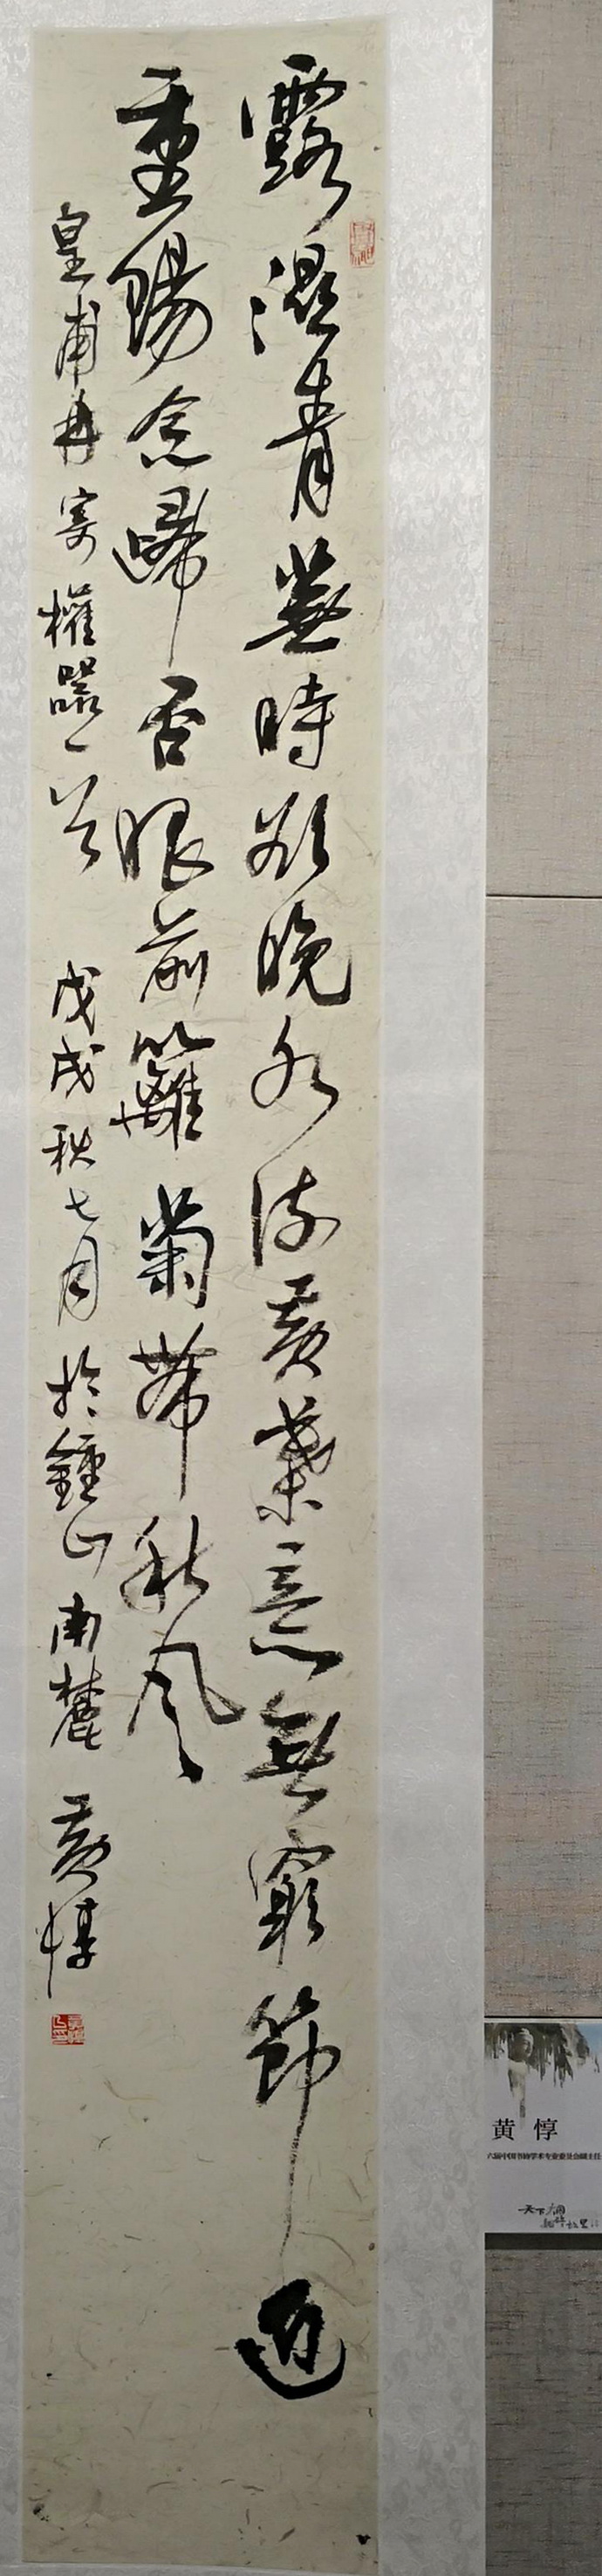 露濕青蕪時欲晚水流黃葉意無窮節近
重陽念歸否眼前籬菊帶秋風
皇甫冉寄權器一首 戊戌秋七月於鍾山南麓 黃惇
黄 惇